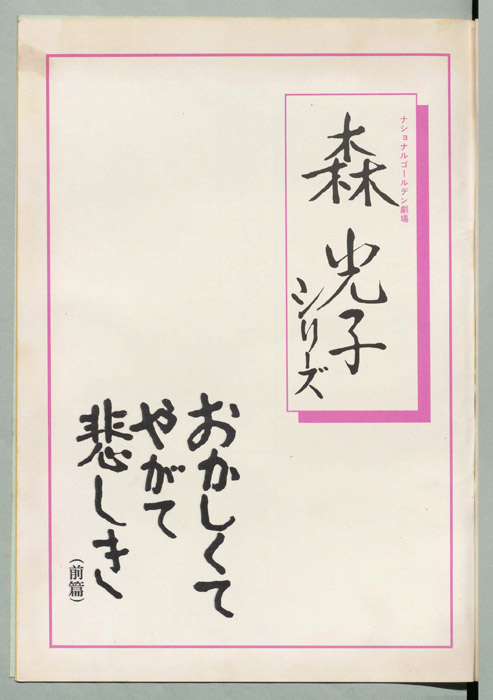 ナショナルゴールデン劇場
森光子
シリーズ
おかしくて
やがて
悲しき〱
（前篇）